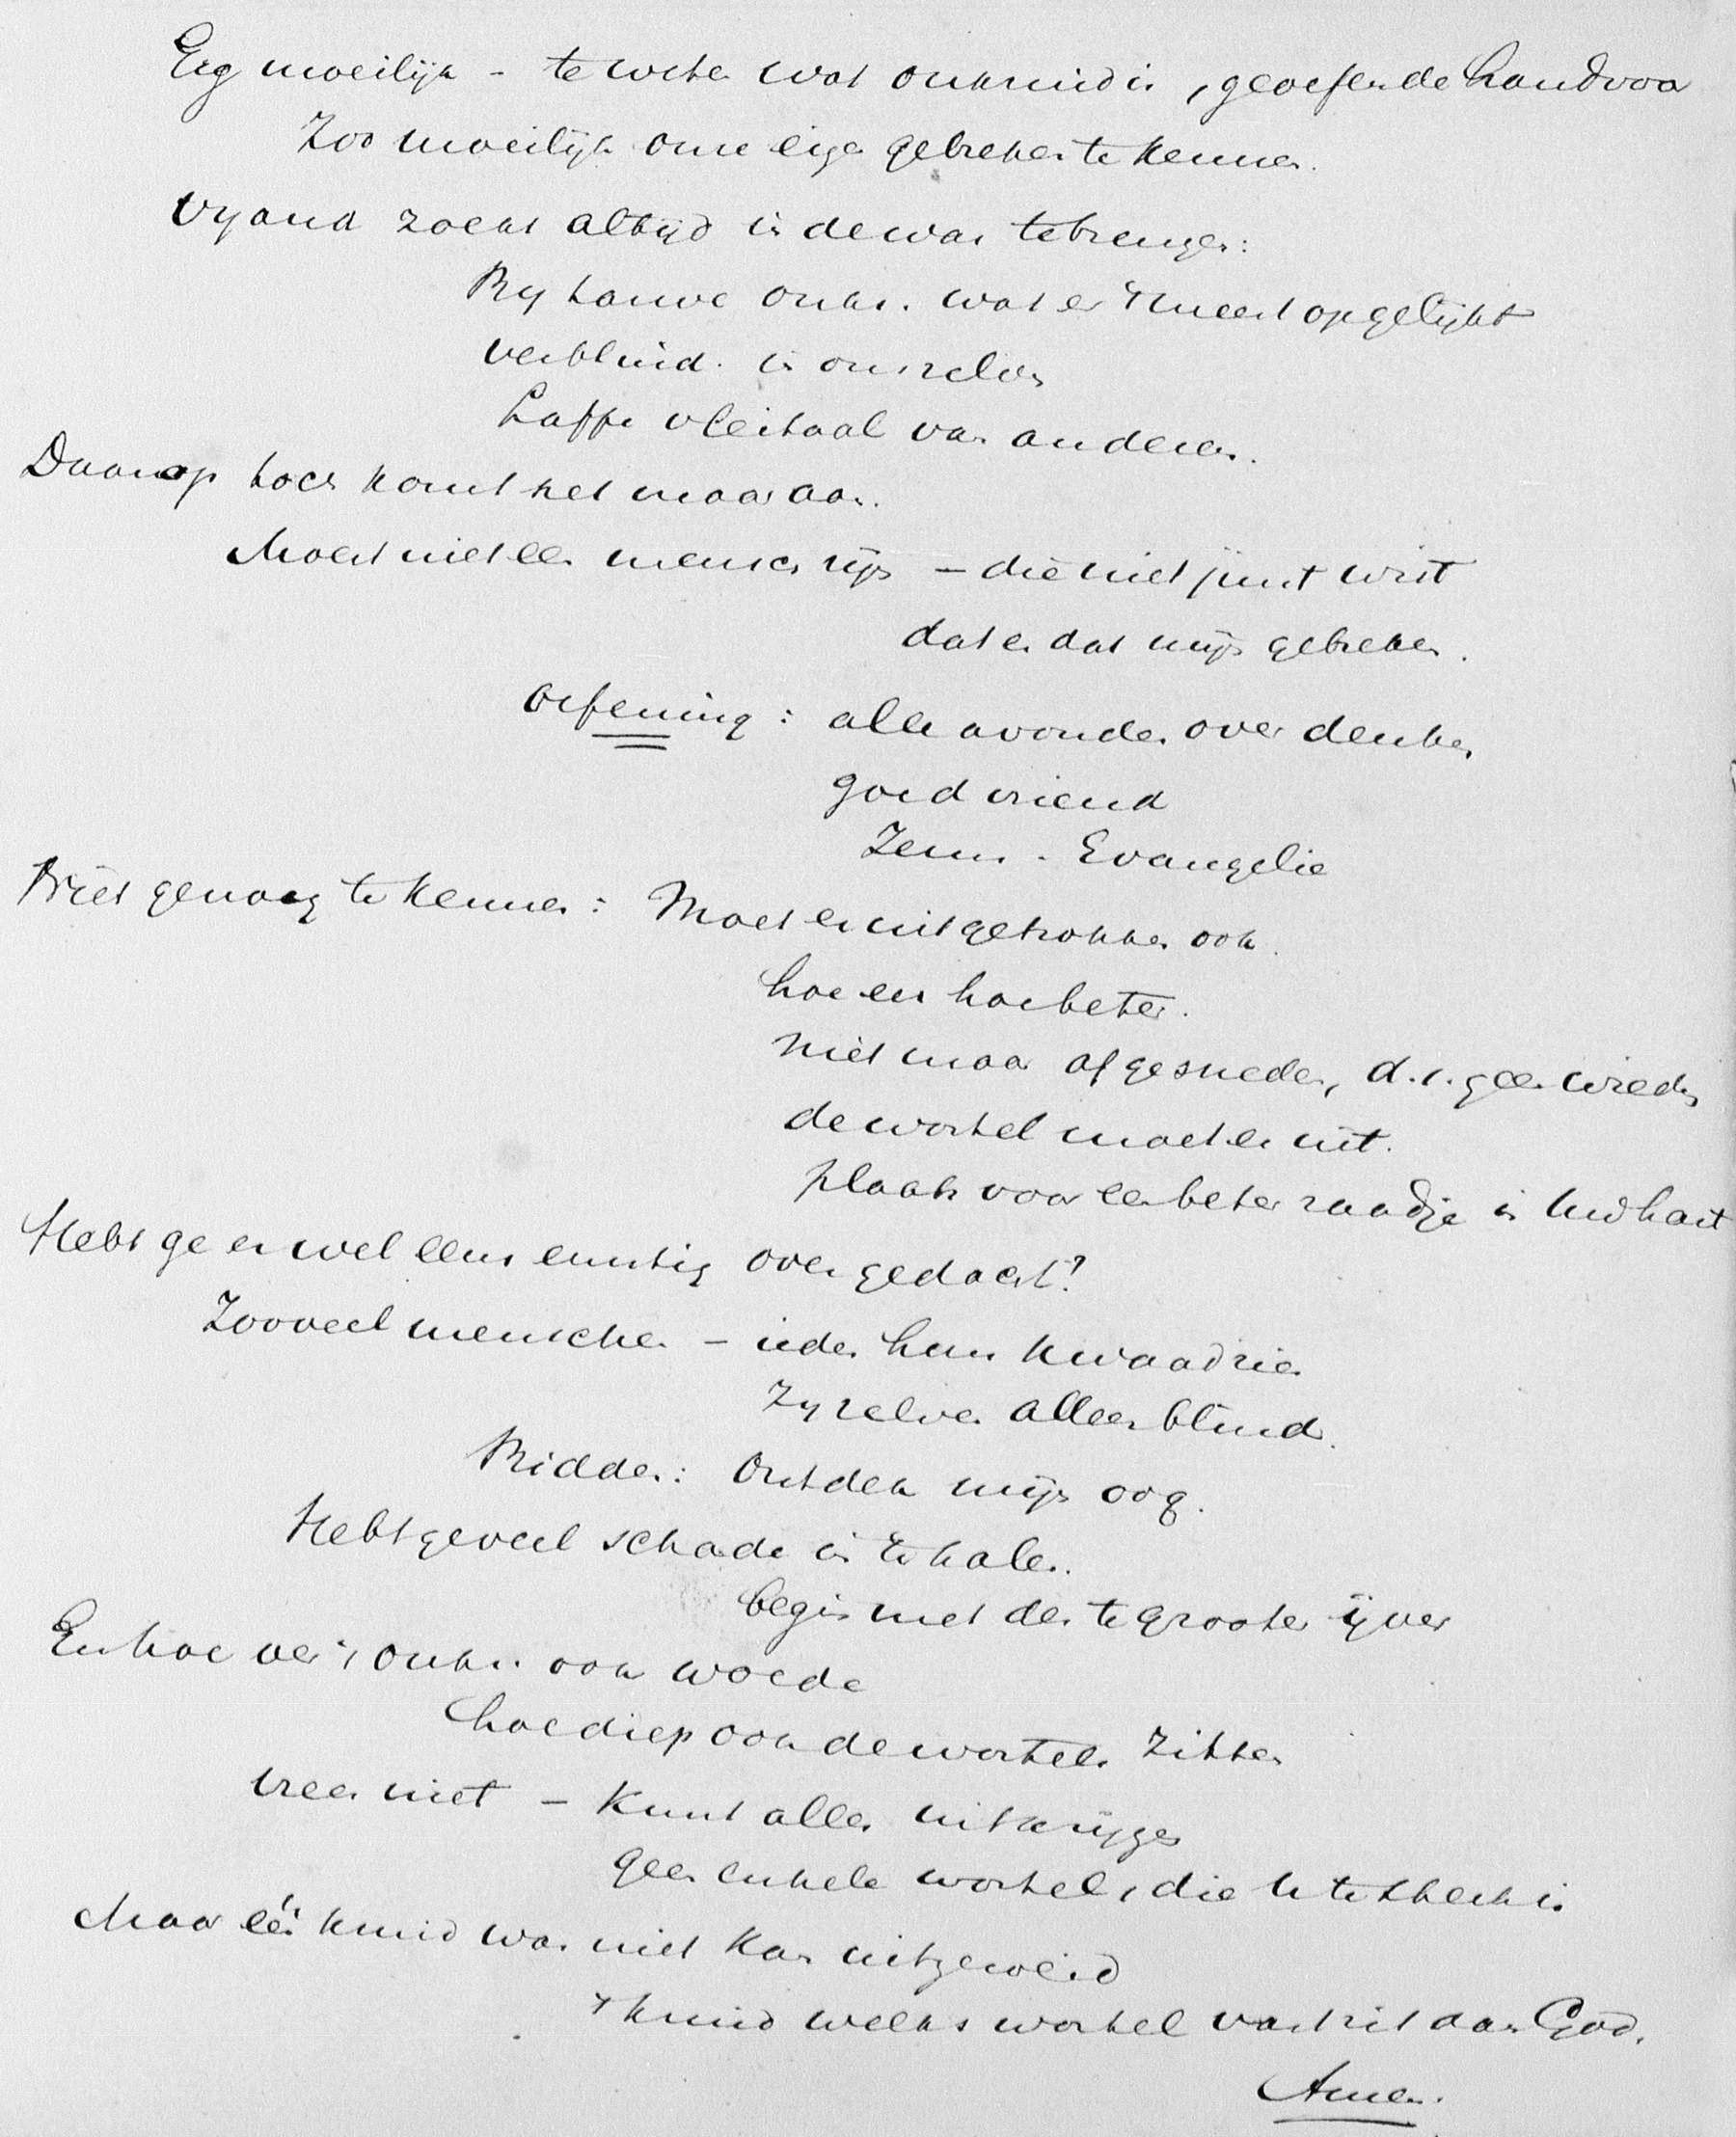 Erg moeilijk - te weten wat onkruid is, geoefende hand voor
Zoo moeilijk onze eigen gebreken te kennen.
Vyand zoekt altijd in de war te brengen:
By tarwe onkr. wat er 't meest op gelijkt
verblind. in ons zelven
Laffe vleitaal van anderen.
Daarop toch komt het maar aan.
Moest niet een mensch zijn - die niet juist wist
dat en dat mijn gebreken.
Oefening: alle avonden overdenken
goed vriend
Jezus. Evangelie
Niet genoeg te kennen: Moet er uitgetrokken ook.
hoe eer hoe beter.
Niet maar afgesneden, d.i. geen wieden
de wortel moet er uit.
plaats voor een beter zaadje in Uw hart
Hebt ge er wel eens ernstig over gedacht?
Zooveel menschen - ieder hun kwaad zien
Zy zelven alleen blind.
Bidden: Ontdek mijn oog.
Hebt ge veel schade in te halen.
begin met des te grooter ijver
En hoe ver 't onkr. ook woede
hoe diep ook de wortels zitten
vrees niet - Kunt alles uitkrijgen
geen enkele wortel, die U te sterk is
Maar één kruid was niet kan uitgewied
't kruid welks wortel vastzit aan God.
Amen.